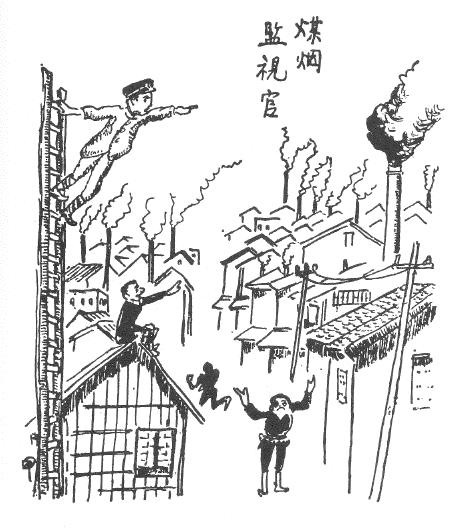 煤烟
監視官